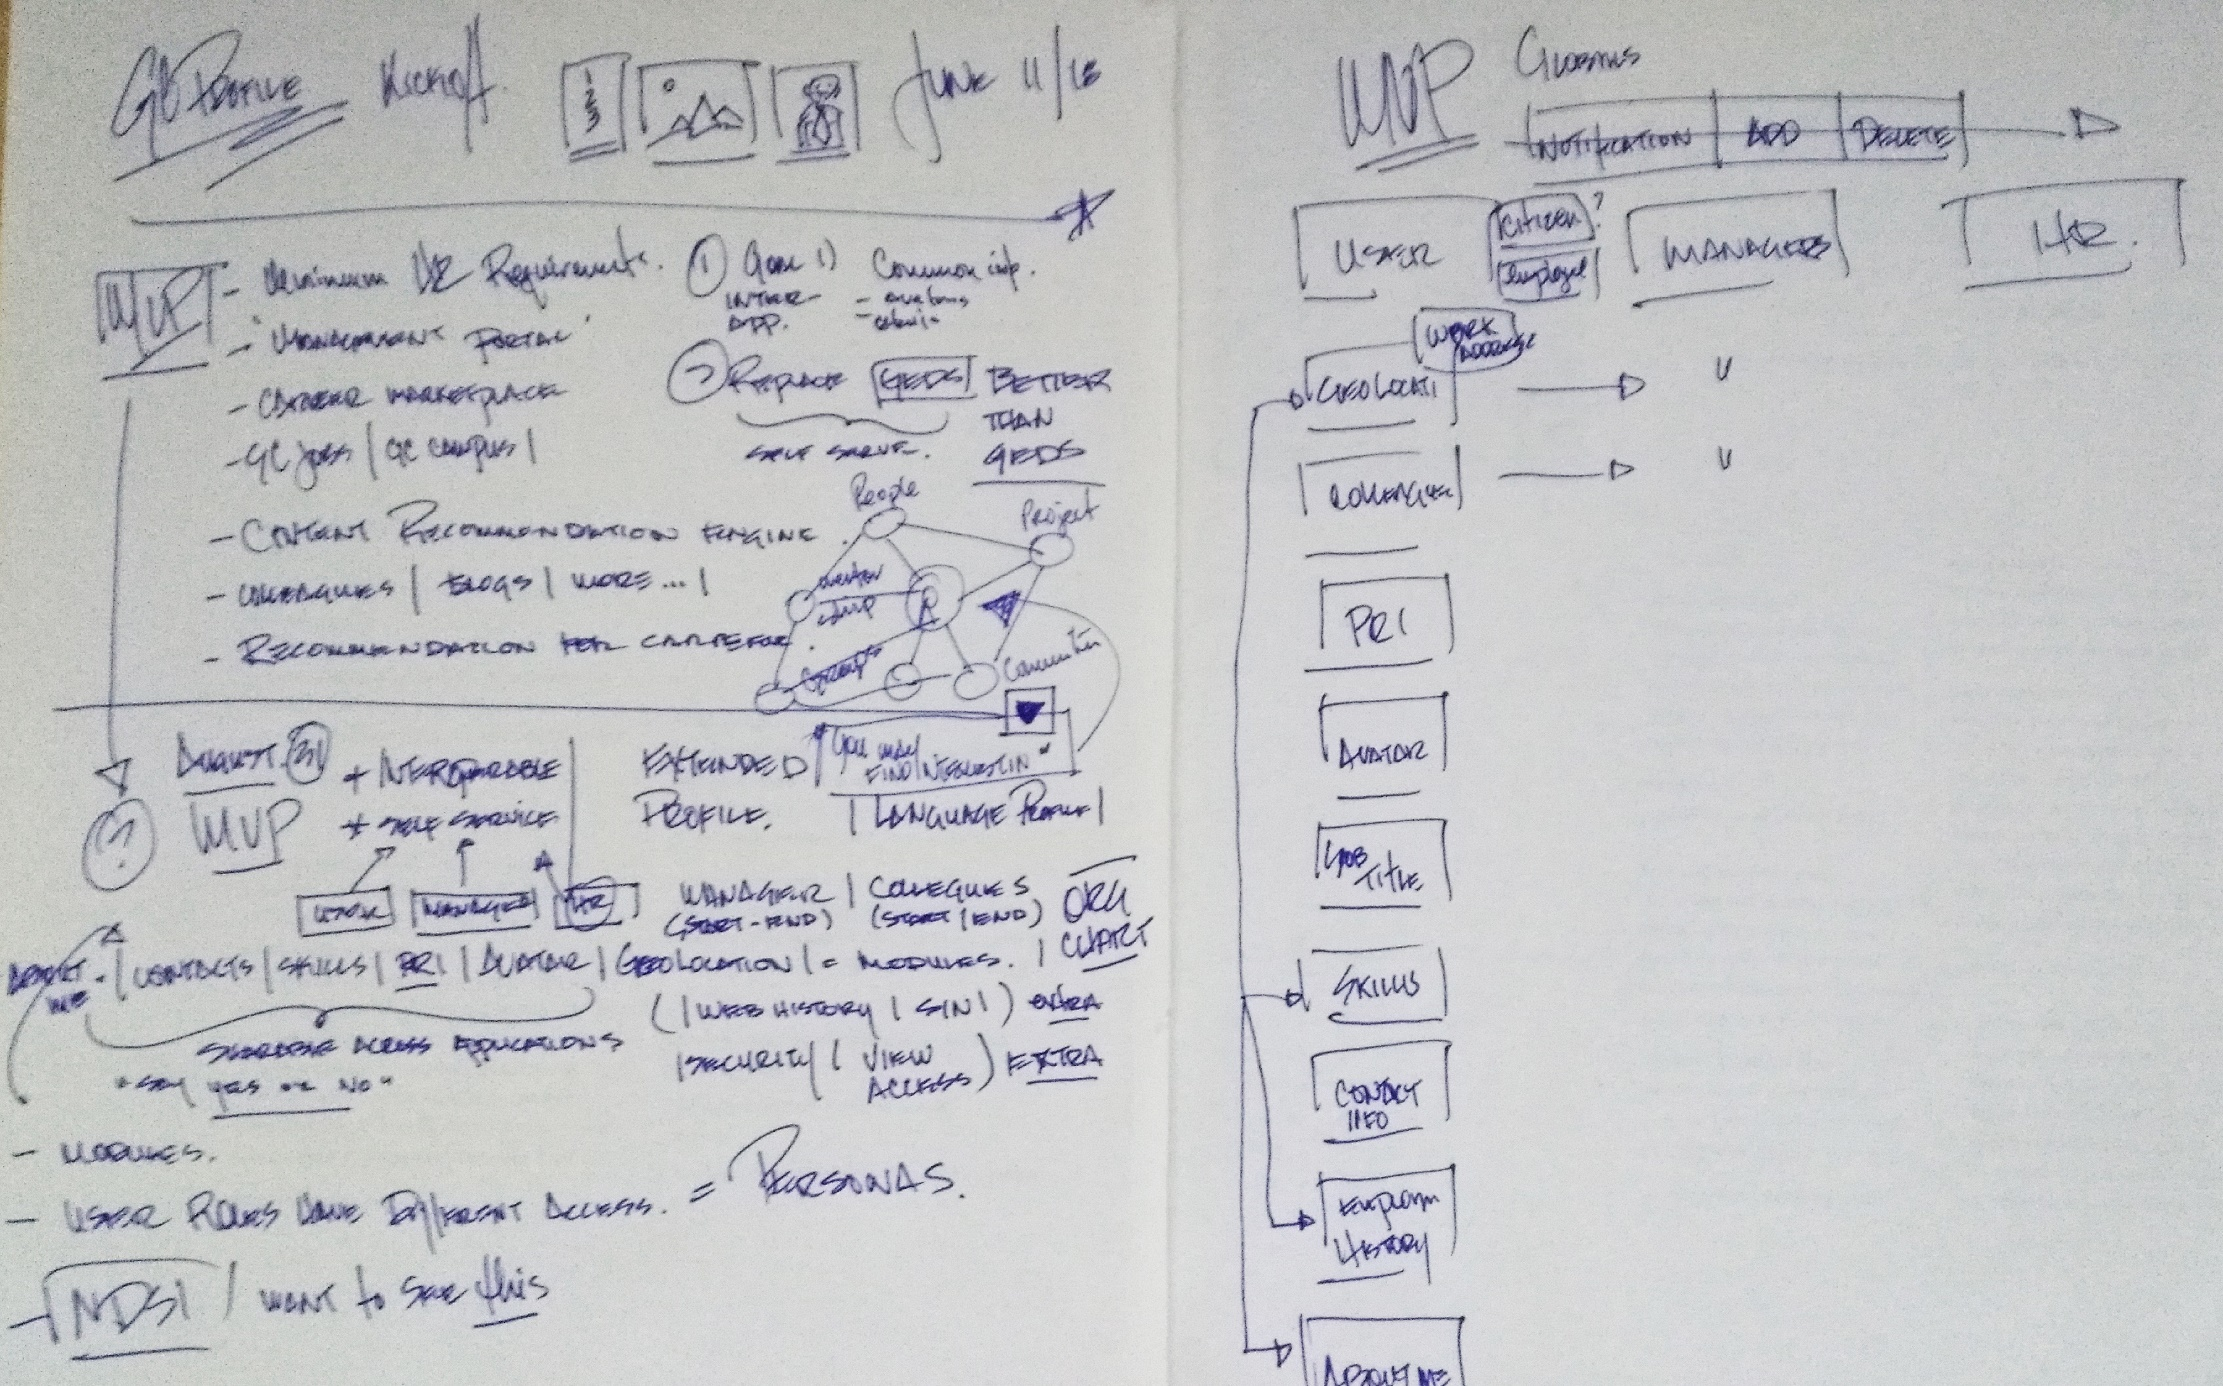 Kickoff
June 11/18
MVP
- Minimum UX Requirements.
- "Management Portal"
- Career Marketplace
- GC Jobs | GC Campus |
- Content Recommendation Engine.
- Colleagues | Blogs | More... |
- Recommendation for
① Goal 1)
Inter-
App.
Common
- avatars
② Replace GEDS Better
than
GEDS
self serve.
People
Project
Groups
August 31
MVP
+ Interoperable
+ Self Service
User Manager HR
Extended
Profile.
"You may
find interestin"
| Language Profile |
Manager | Collegues
(Start-End) (Start/End)
Org
Chart
About
me
| Contacts | Skills | PRI | Avatar | Geolocation | = Modules. |
Shareable Across Applications
"Say yes or no"
(| Web History | SIN |) extra
| Security / ( View
Access ) Extra
- Modules.
- User Roles Have Different Access. = Personas.
- NDSI / want to see this
MVP
Notification Add Delete
User
Citizen?
Employee
Managers
HR.
Work
Address
Geolocati
"
Collegue
"
PRI
Avatar
Job
Title
Skills
Contact
Info
Employm
History
About Me